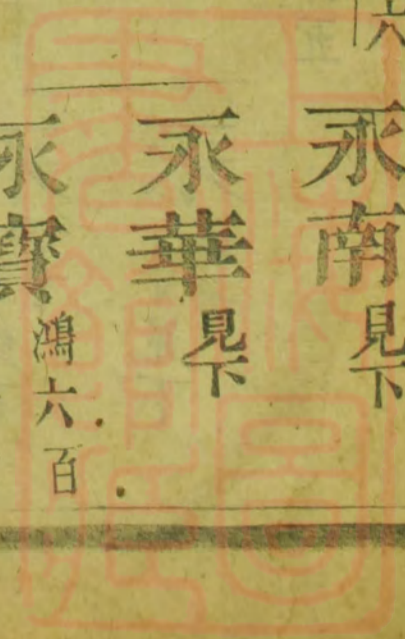 永南見下
永華見下
永寶鴻六百